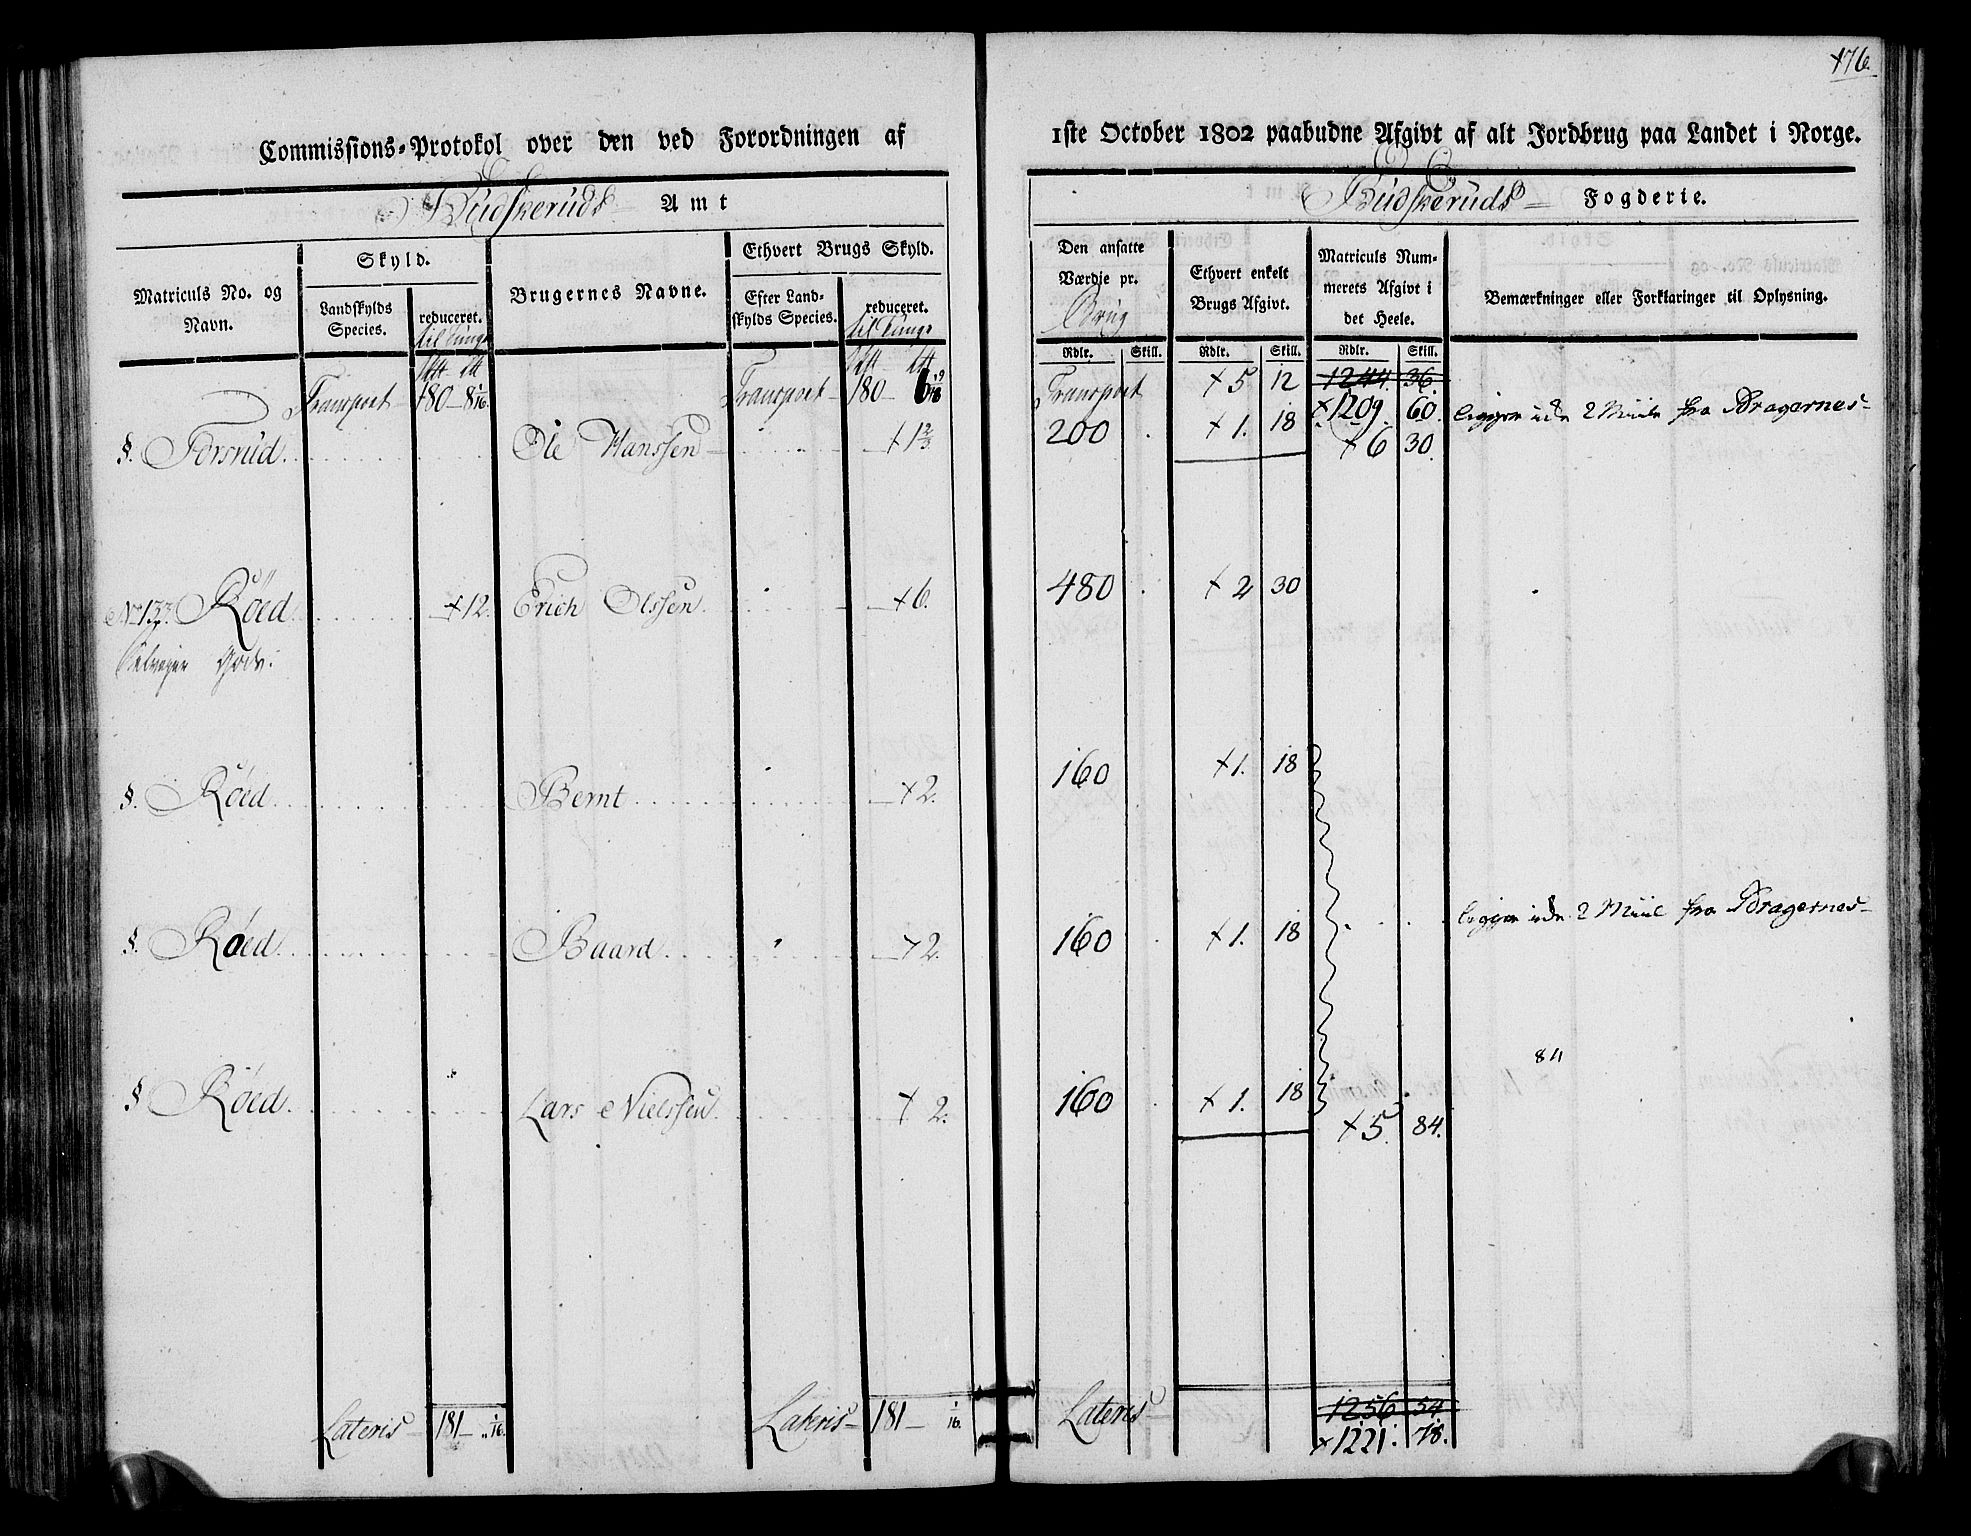 176.
Commissions-Protokol over den ved Forordningen af 1ste October 1802 paabudne Afgivt af alt Jordbrug paa Landet i Norge.
Budskeruds Amt
Budskeruds Fogderie.
Matriculs No. og Navn.
Skyld.
Landskylds Species.
reduceret. til Tunge
Brugernes Navne.
Ethvert Brugs Skyld.
Efter Landskylds Species.
reduceret. til Tunge
Den ansatte Værdie pr. Brug
Ethvert enkelt Brugs Afgivt.
Matriculs Nummerets Afgivt i det Heele.
Bemærkninger eller Forklaringer til Oplysning.
Rdlr. Skill. Rdlr. Skill. Rdlr. Skill.
Transport 180 — 8 1/16. Transport 180 — 6 Transport + 5 12 1244. 36.
+ 1209. 60.
§. Forsrud. Ole Hanssen + 1 2/3 200 . + 1. 18 + 6 30. ligger ude 2 Miile fra Bragernes
No 13. Röed. + 12. Erich Olssen. + 6. 480 . + 2 30
Selveger Gods.
§. Röed. Bernt + 2. 160 + 1. 18
§. Röed. Baard. + 2. 160 . + 1. 18 ligger ude 2 Miil fra Bragernes
84
§ Röed. Lars Nielssen. + 2. 160 . + 1. 18 + 5. 84.
Lateris 181 — „ 1/16. Lateris 181 — 1/16. Lateris 1256 54
+ 1221. 78.